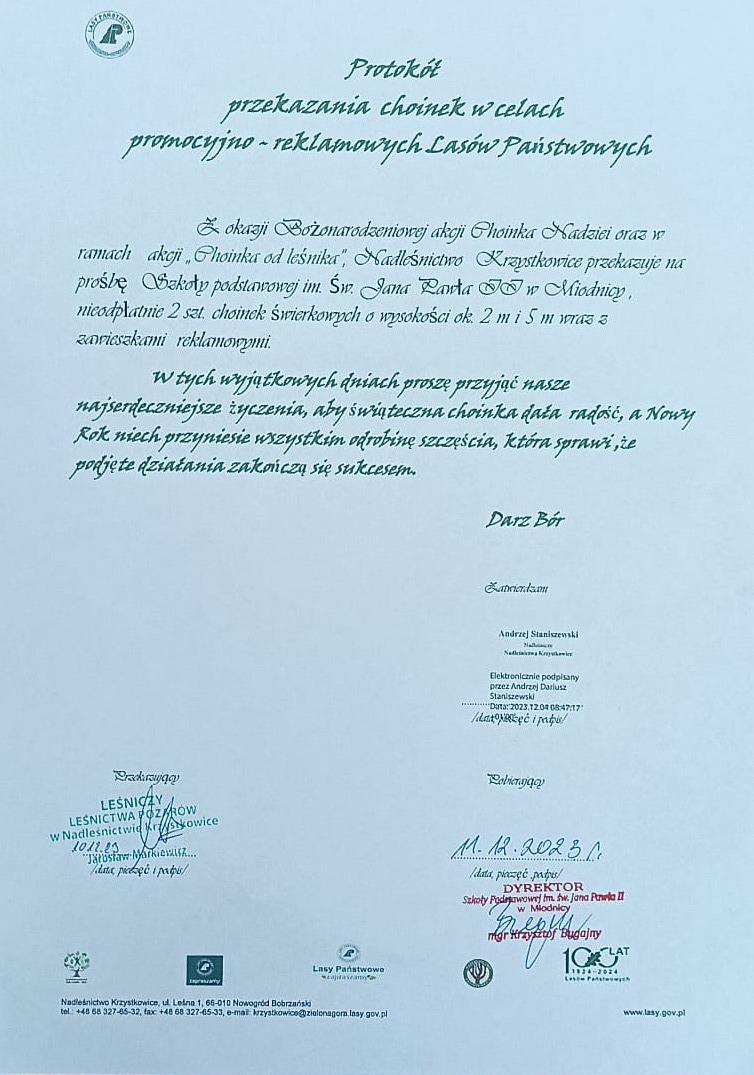 LASY PAŃSTWOWE
Protokół
przekazania choinek w celach
promocyjno - reklamowych Lasów Państwowych
Z okazji Bożonarodzeniowej akcji Choinka Nadziei oraz w
ramach akcji „Choinka od leśnika”, Nadleśnictwo Krzystkowice przekazuje na
prośbę Szkoły podstawowej im. Św. Jana Pawła II w Miodnicy,
nieodpłatnie 2 szt. choinek świerkowych o wysokości ok. 2 m i 5 m wraz z
zawieszkami reklamowymi.
W tych wyjątkowych dniach proszę przyjąć nasze
najserdeczniejsze życzenia, aby świąteczna choinka dała radość, a Nowy
Rok niech przyniesie wszystkim odrobinę szczęścia, która sprawi ,że
podjęte działania zakończą się sukcesem.
Darz Bór
Zatwierdzam
Andrzej Staniszewski
Nadleśniczy
Nadleśnictwa Krzystkowice
Elektronicznie podpisany
przez Andrzej Dariusz
Staniszewski
Data: 2023.12.04 08:47:17
/data, pieczęć i podpis/
Przekazujący
LEŚNICZY
LEŚNICTWA POŻARÓW
w Nadleśnictwie Krzystkowice
10.12.23
Jarosław Markiewicz
/data, pieczęć i podpis/
Pobierający
11.12.2023 r.
/data, pieczęć ,podpis/
DYREKTOR
Szkoły Podstawowej im. św. Jana Pawła II
w Miodnicy
mgr Krzysztof Bugajny
zapraszamy
Lasy Państwowe
zapraszamy
100 LAT
1924-2024
Lasów Państwowych
Nadleśnictwo Krzystkowice, ul. Leśna 1, 66-010 Nowogród Bobrzański
tel.: +48 68 327-65-32, fax: +48 68 327-65-33, e-mail: krzystkowice@zielonagora.lasy.gov.pl
www.lasy.gov.pl